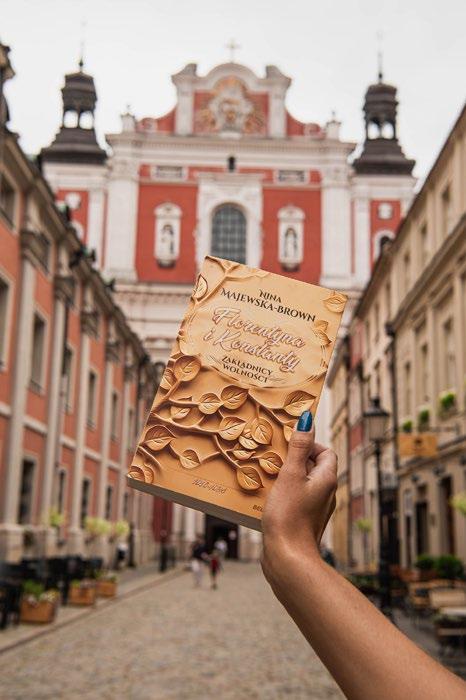 NINA
MAJEWSKA-BROWN
Florentyna
i Konstanty
ZAKŁADNICY
WOLNOŚCI